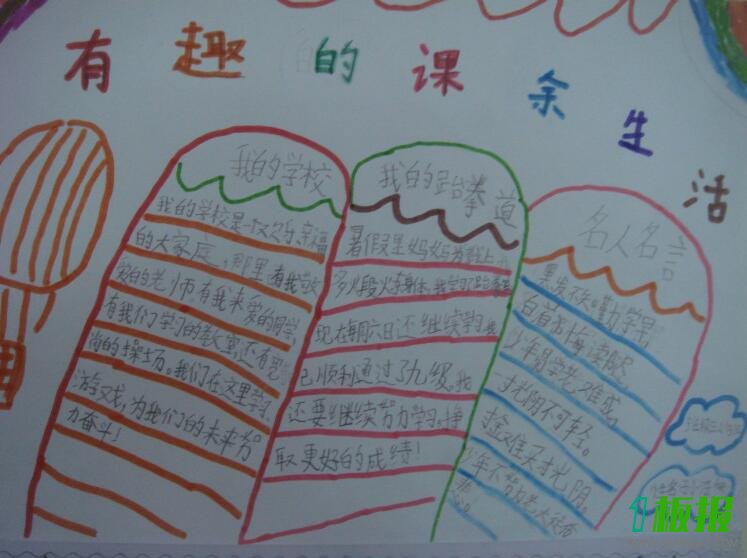 有趣的课余生活
我的学校
我的学校是一个欢乐、幸福
的大家庭，那里有我敬
爱的老师，有我亲爱的同学
有我们学习的教室，还有宽
尚的操场。我们在这里学习
游戏，为我们的未来努
力奋斗！
我的跆拳道
暑假里妈妈为
现在每周六日还继续学习
已顺利通过了九级。我
还要继续努力学习，挣
取更好的成绩！
名人名言
黑发不知勤学早，
白首方悔读书尺。
少年易学老难成，
一寸光阴不可轻。
金难买寸光阴。
少年不努力老大徒伤
悲。
1板报